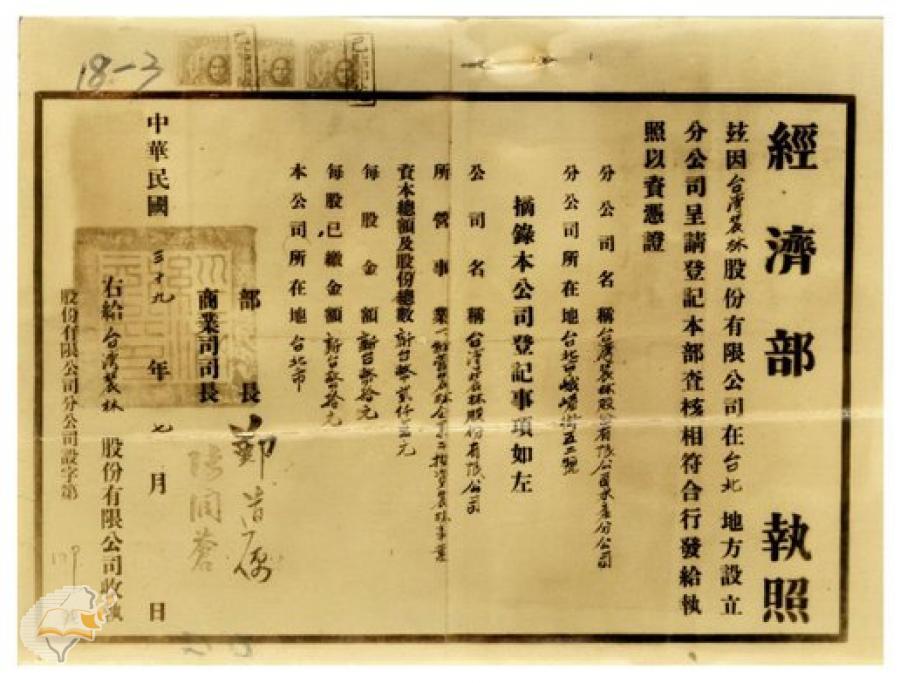 經濟部執照
茲因台灣農林股份有限公司在台北地方設立
分公司呈請登記本部查核相符合行發給執
照以資憑證
分公司名稱台灣農林股份有限公司水產分公司
分公司所在地台北峨嵋街五二號
摘錄本公司登記事項如左
公司名稱台灣農林股份有限公司
所營事業
資本總額及股份總數
每股金額新台幣拾元
每股已繳金額新台幣拾元
本公司所在地台北市
部長鄭道儒
商業司司長
中華民國三十九年七月 日
右給台灣農林股份有限公司收執
股份有限公司分公司設字第 號
18-3